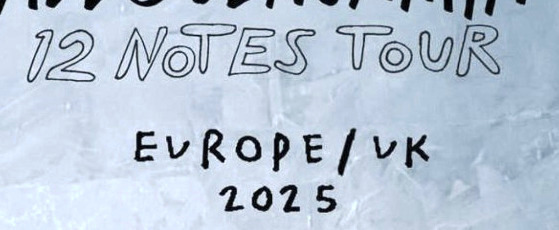 12 NOTES TOUR
EUROPE/UK
2025